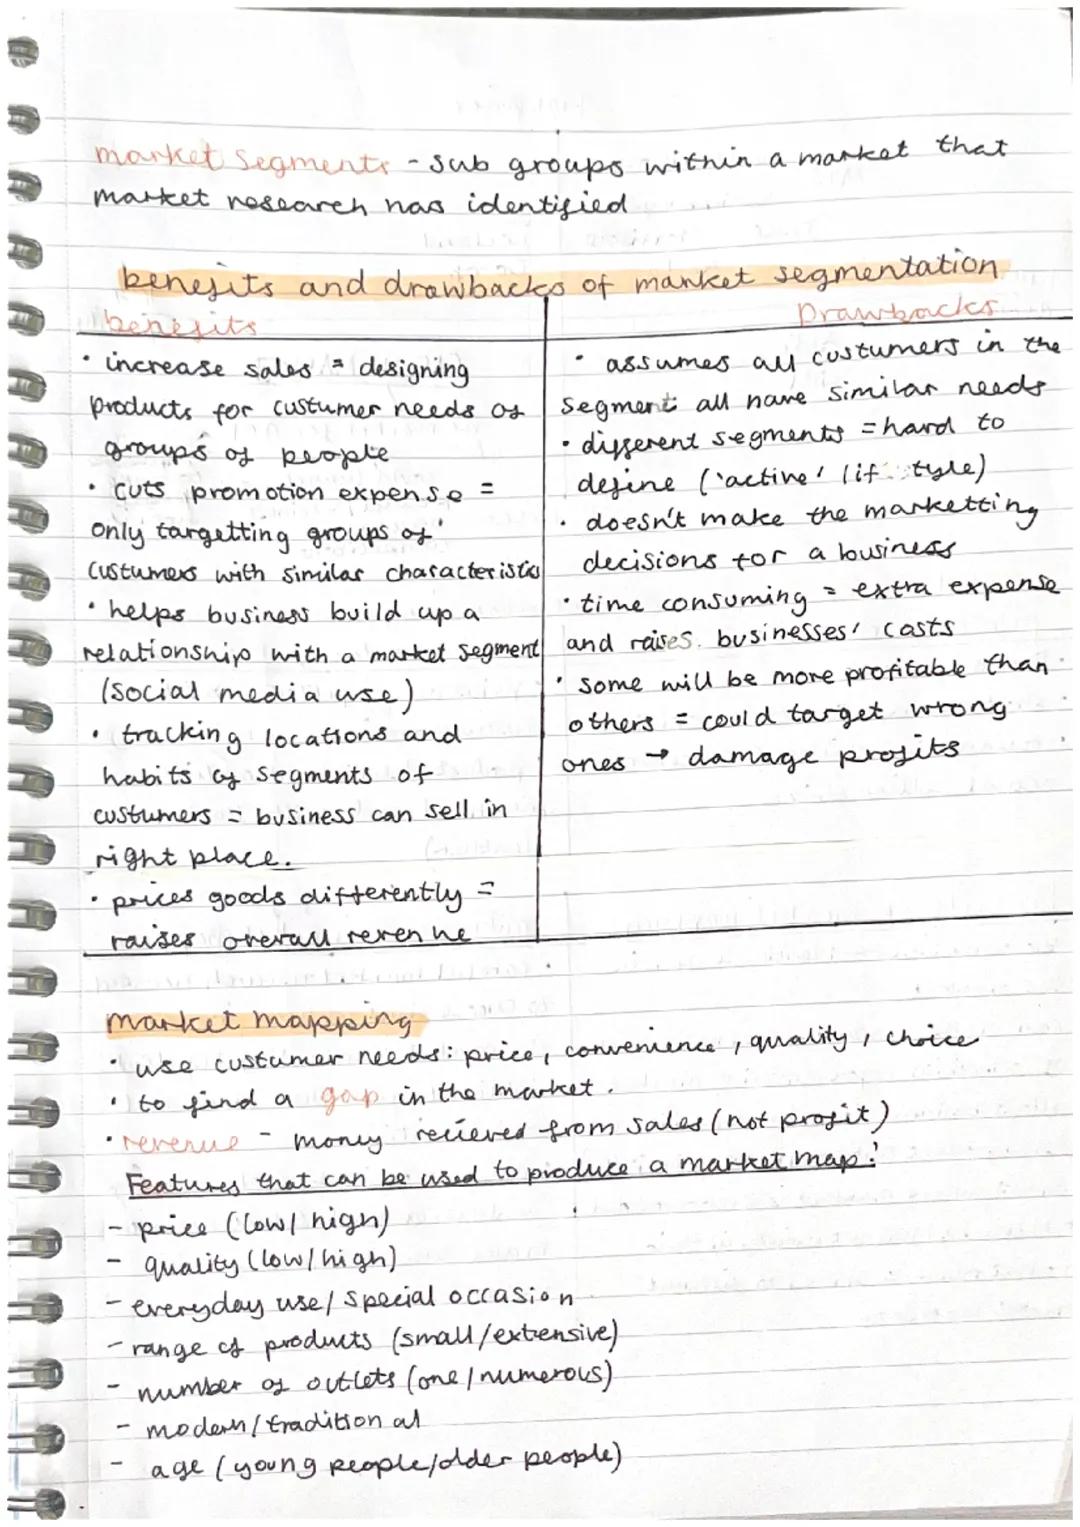 market segments - sub groups within a market that
market research has identified
benefits and drawbacks of market segmentation
benefits
• increase sales = designing
products for custumer needs of
groups of people
• cuts promotion expense =
only targetting groups of
custumers with similar characteristic
• helps business build up a
relationship with a market segment
(social media use)
• tracking locations and
habits of segments of
custumers = business can sell in
right place.
• prices goods differently =
raises overall revenue
Drawbacks
• assumes all custumers in the
segment all have similar needs
• different segments = hard to
define ('active' lif tyle)
• doesn't make the marketting
decisions for a business
• time consuming = extra expense
and raises businesses' costs
• some will be more profitable than
others = could target wrong
ones → damage profits
market mapping
• use custumer needs: price, convenience, quality, choice
• to find a gap in the market.
• revenue - money recieved from sales (not profit)
Features that can be used to produce a market map:
- price (low/high)
- quality (low/high)
- everyday use/special occasion
- range of products (small/extensive)
- number of outlets (one/numerous)
- modern/traditional
- age (young people/older people)